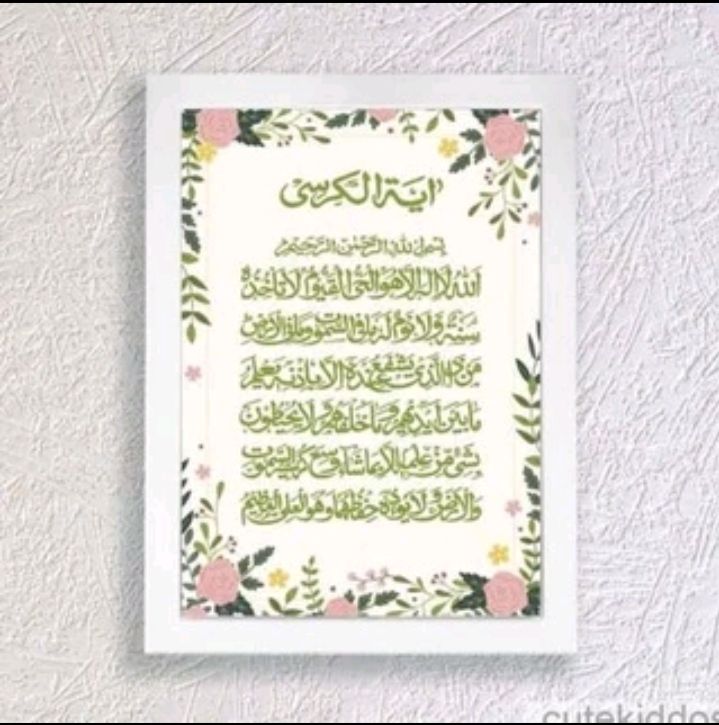 اٰية الكرسى
بسم الله الرحمن الرحيم
الله لا اله الا هو الحي القيوم لا تأخذه
سنة ولا نوم له ما في السموت وما في الارض
من ذا الذى يشفع عنده الا باذنه يعلم
ما بين ايديهم وما خلفهم ولا يحيطون
بشىء من علمه الا بما شاء وسع كرسيه السموت
والارض ولا يوده حفظهما وهو العلي العظيم
cutekiddos